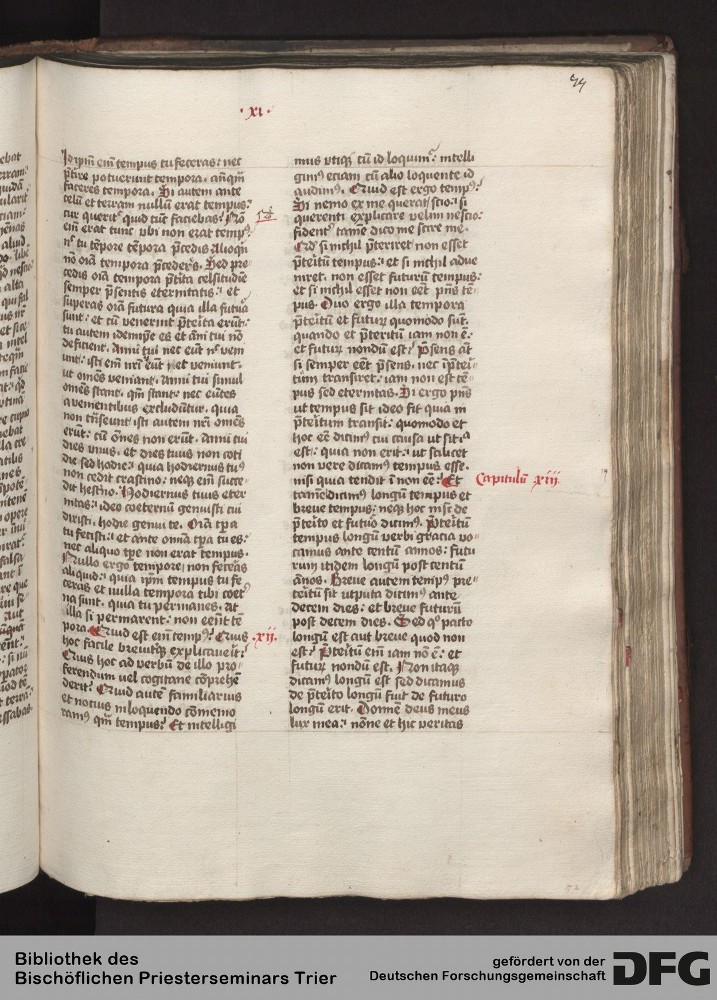 74
· xi ·
Id ip̄m em̄ tempus tu feceras: nec
p̄tire potuerunt tempora. anq̄m
faceres tempora. Si autem ante
celū et terram nullū erat tempus:
cur querit᷑ quid tūc faciebas? Nō
em̄ erat tunc vbi non erat tempꝰ.
nc̄ tu tēpore tēpora p̄cedis alioqn̄
nō oīa tempora p̄cederꝭ. Sed pre
cedis oīa tempora p̄tīta celsitudīe
semper p̄sentis eternitatis: et
superas oīa futura quia illa futūa
sunt: et cū venerint p̄teīta erūt:
tu autem idem ip̄e es et anī tui nō
deficient. Anni tui nec eūt nc̄ ven
iunt: isti em̄ nrī eūt et veniunt.
ut omēs veniant. Anni tui simul
omēs stant. qm̄ stant: nec eūtes
a venientibus excludūtur. quia
non trāseunt: isti autem nrī omēs
erūt: cū om̄es non erūt. Anni tui
dies vnus. et dies tuus non coti
die sed hodie: quia hodiernus tuꝰ
non cedit crastino: neqꝫ em̄ succe
dit hestno. Hodiernus tuus eter
nitas: ideo coeternū genuisti cui
dixisti. hodie genui te. Oīa tp̄a
tu fecisti: et ante omīa tp̄a tu es:
nec aliquo tp̄e non erat tempus.
Nullo ergo tempore non feceās
aliquid: quia ip̄m tempus tu fe
ceras et nulla tempora tibi coet᷑
na sunt. quia tu permanes. At
illa si permarent: non eēnt tē
pora. Quid est em̄ tempꝰ? Quis .xij.
hoc facile breuitqꝫ explicauerit?
Quis hoc ad verbū de illo pro
ferendum uel cogitatne cōprehē
derit? Quid autē familiarius
et notius in loquendo cōmemo
ramꝰ qm̄ tempus? Et intelligi
mus vtiqꝫ cū id loquimr᷑: intelli
gimꝰ eciam cū alio loquente id
audimꝰ. Quid est ergo tempꝰ?
Si nemo ex me querat scio: si
querenti explicare velim nescio:
fident᷑ tamē dico me scire me.
Qd̕ si nichil p̄teriret non esset
p̄teītū tempus: et si nichil adue
niret. non esset futurū tempus:
et si nichil esset non eēt pn̄s tē
pus. Duo ergo illa tempora
p̄teītū et futuꝝ quomodo sūt.
quando et p̄teritū iam non ē:
et futuꝝ nondū est? P̄sens āt
si semper eēt p̄sens. nec ip̄teī
tum transiret: iam non est tē
pus sed eternitas. Si ergo pn̄s
ut tempus sit ideo fit quia in
p̄teītum transit: quomodo et
hoc eē dicimꝰ cui causa ut sit
est: quia non erit: ut scilicet
non vere dicamꝰ tempus esse.
nisi quia tendit ī non eē? Et Capitulū xiij
tamē dicimꝰ longū tempus et
breue tempus: neqꝫ hoc nisi de
p̄teīto et futūo dicimꝰ. P̄teītū
tempus longū verbi gracia vo
camus ante centū annos: futu
rum itidem longū post centū
ānos. Breue autem tempꝰ pre
teītū sit utputa dicimꝰ ante
decem dies: et breue futurū
post decem dies. Sed qͦ pacto
longū est aut breue quod non
est? P̄teītū em̄ iam nō ē: et
futuꝝ nondū est. Non itaqꝫ
dicamꝰ longū est sed dicamus
de p̄teīto longū fuit de futuro
longū erit. Domine deus meus
lux mea: nōne et hic veritas
Bibliothek des
Bischöflichen Priesterseminars Trier
gefördert von der
Deutschen Forschungsgemeinschaft
DFG